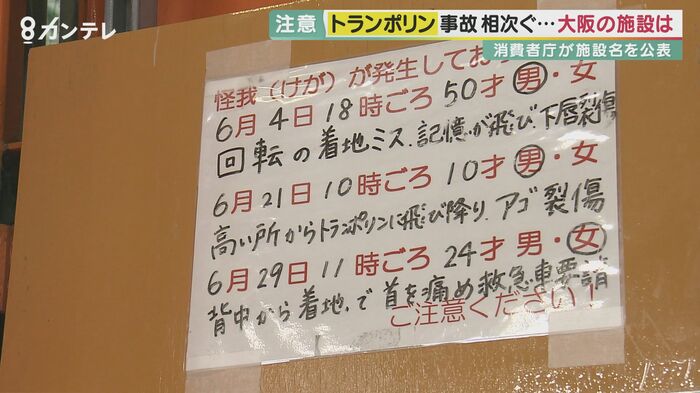 8カンテレ
注意 トランポリン 事故 相次ぐ…大阪の施設は
消費者庁が施設名を公表
怪我(けが)が発生してお
6月4日18時ごろ 50才 男・女
回転の着地ミス、記憶が飛び、下唇裂傷
6月21日10時ごろ 10才 男・女
高い所からトランポリンに飛び降り、アゴ裂傷
6月29日11時ごろ 24才 男・女
背中から着地で首を痛め救急車要請
ご注意ください!